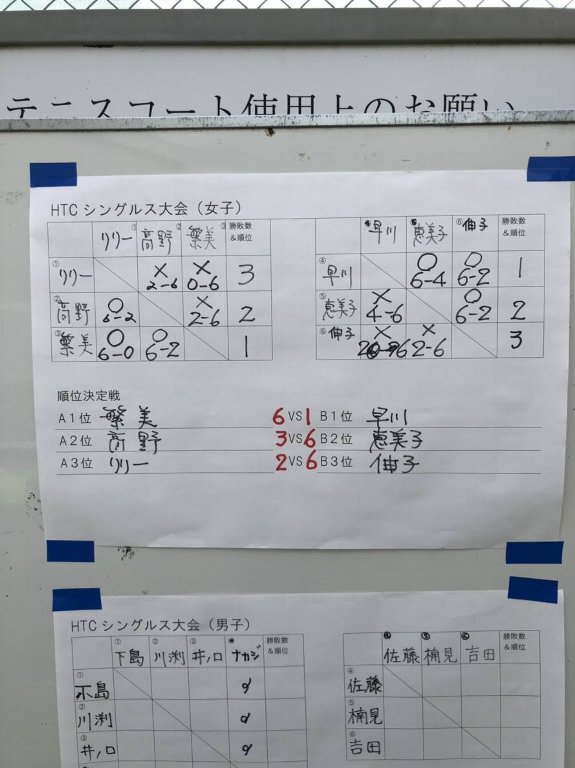 テニスコート使用上のお願い
HTC シングルス大会（女子）
リリー① 高野② 繁美③ 勝敗数&順位
①リリー × 2-6 × 0-6 3
②高野 ○ 6-2 × 2-6 2
③繁美 ○ 6-0 ○ 6-2 1
早川 恵美子 ⑥伸子 勝敗数&順位
④早川 ○ 6-4 ○ 6-2 1
⑤恵美子 × 4-6 ○ 6-2 2
⑥伸子 × 2-6 × 2-6 3
順位決定戦
A1位 繁美 6 VS 1 B1位 早川
A2位 高野 3 VS 6 B2位 恵美子
A3位 リリー 2 VS 6 B3位 伸子
HTC シングルス大会（男子）
①下島 ②川渕 ③井ノ口 ナカジ 勝敗数&順位
①下島
②川渕
③井ノ口
佐藤 楠見 吉田 勝敗数&順位
④佐藤
⑤楠見
⑥吉田